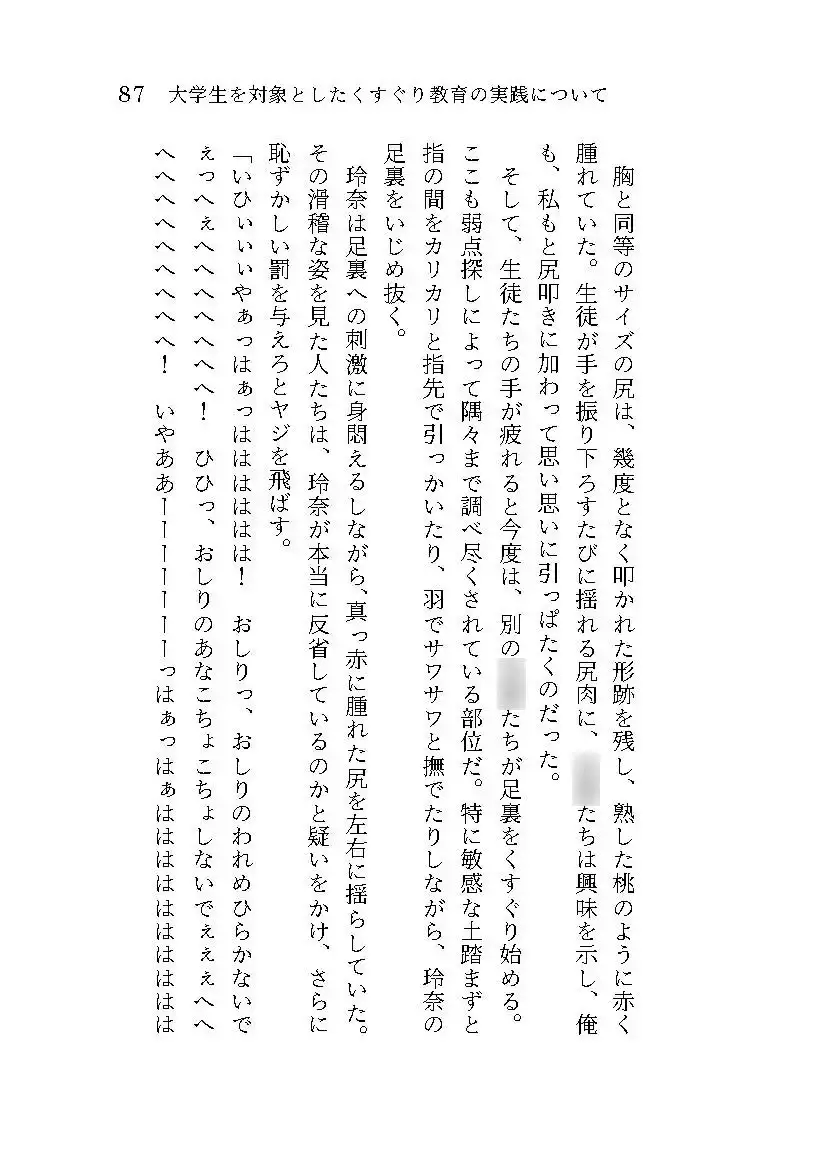 87　大学生を対象としたくすぐり教育の実践について
胸と同等のサイズの尻は、幾度となく叩かれた形跡を残し、熟した桃のように赤く
腫れていた。生徒が手を振り下ろすたびに揺れる尻肉に、たちは興味を示し、俺
も、私もと尻叩きに加わって思い思いに引っぱたくのだった。
そして、生徒たちの手が疲れると今度は、別のたちが足裏をくすぐり始める。
ここも弱点探しによって隅々まで調べ尽くされている部位だ。特に敏感な土踏まずと
指の間をカリカリと指先で引っかいたり、羽でサワサワと撫でたりしながら、玲奈の
足裏をいじめ抜く。
玲奈は足裏への刺激に身悶えるしながら、真っ赤に腫れた尻を左右に揺らしていた。
その滑稽な姿を見た人たちは、玲奈が本当に反省しているのかと疑いをかけ、さらに
恥ずかしい罰を与えろとヤジを飛ばす。
「いひぃぃぃやぁっはぁっはははははは！　おしりっ、おしりのわれめひらかないで
ぇっへぇへへへへへへ！　ひひっ、おしりのあなこちょこちょしないでぇぇぇへへ
へへへへへへへへへ！　いやああーーーーーーーっはぁっはぁはははははははははは